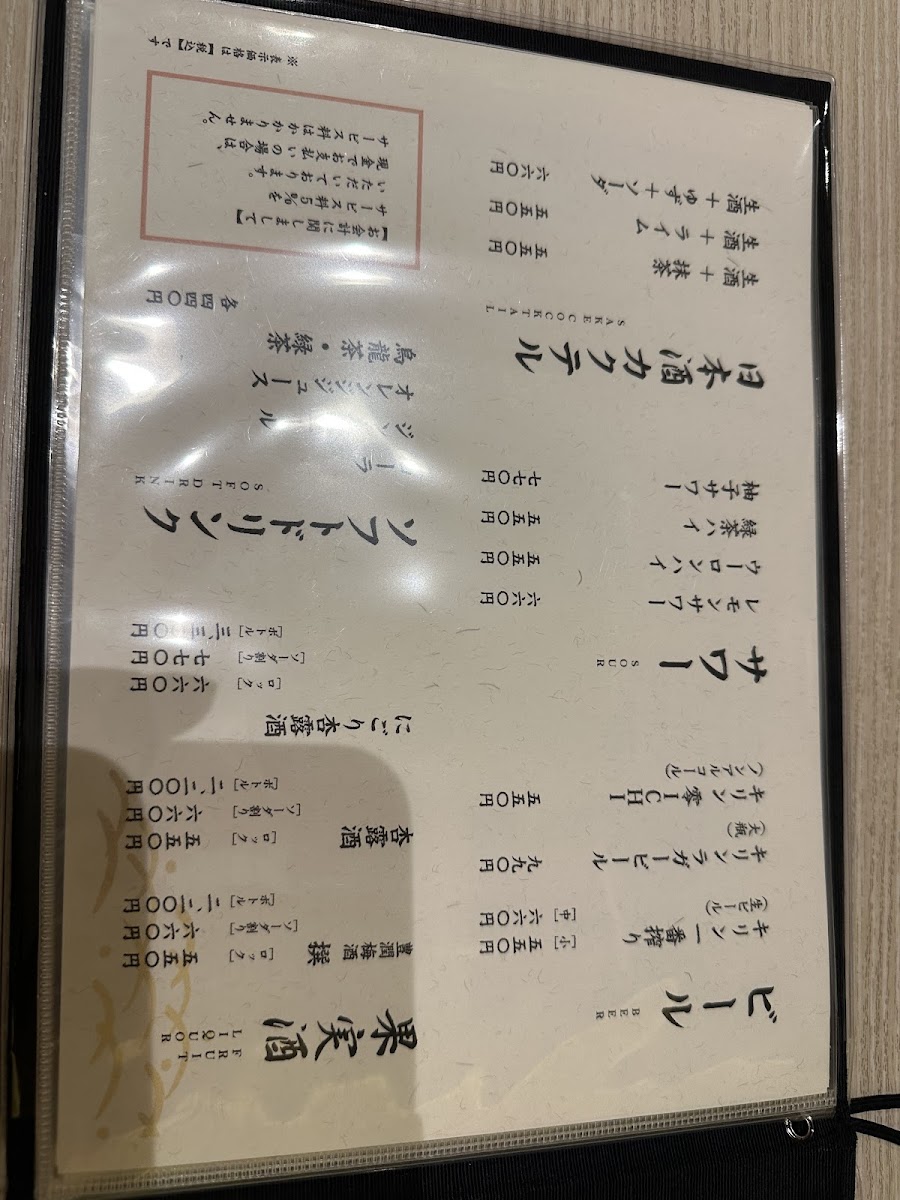 ビール
BEER
キリン一番搾り
(生ビール)
[小] 五五〇円
[中] 六六〇円
キリンラガービール
(大瓶)
九九〇円
キリン零ICHI
(ノンアルコール)
五五〇円
サワー
SOUR
レモンサワー 六六〇円
ウーロンハイ 五五〇円
緑茶ハイ 五五〇円
柚子サワー 七七〇円
日本酒カクテル
SAKE COCKTAIL
生酒+抹茶 五五〇円
生酒+ライム 五五〇円
生酒+ゆず+ソーダ 六六〇円
果実酒
FRUIT
LIQUOR
豊潤梅酒 撰
[ロック] 五五〇円
[ソーダ割り] 六六〇円
[ボトル] 二、二〇〇円
杏露酒
[ロック] 五五〇円
[ソーダ割り] 六六〇円
[ボトル] 二、二〇〇円
にごり杏露酒
[ロック] 六六〇円
[ソーダ割り] 七七〇円
[ボトル]
ソフトドリンク
SOFT DRINK
オレンジジュース
烏龍茶・緑茶
各四四〇円
【お会計に関しまして】
サービス料5%を
いただいております。
現金でお支払いの場合は、
サービス料はかかりません。
※表示価格は【税込】です